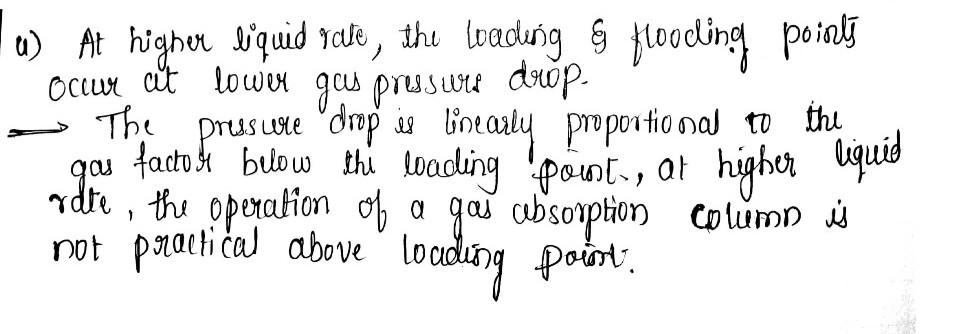 a) At higher liquid rate, the loading & flooding points
occur at lower gas pressure drop.
→ The pressure drop is linearly proportional to the
gas factor below the loading point., at higher liquid
rate, the operation of a gas absorption column is
not practical above loading point.